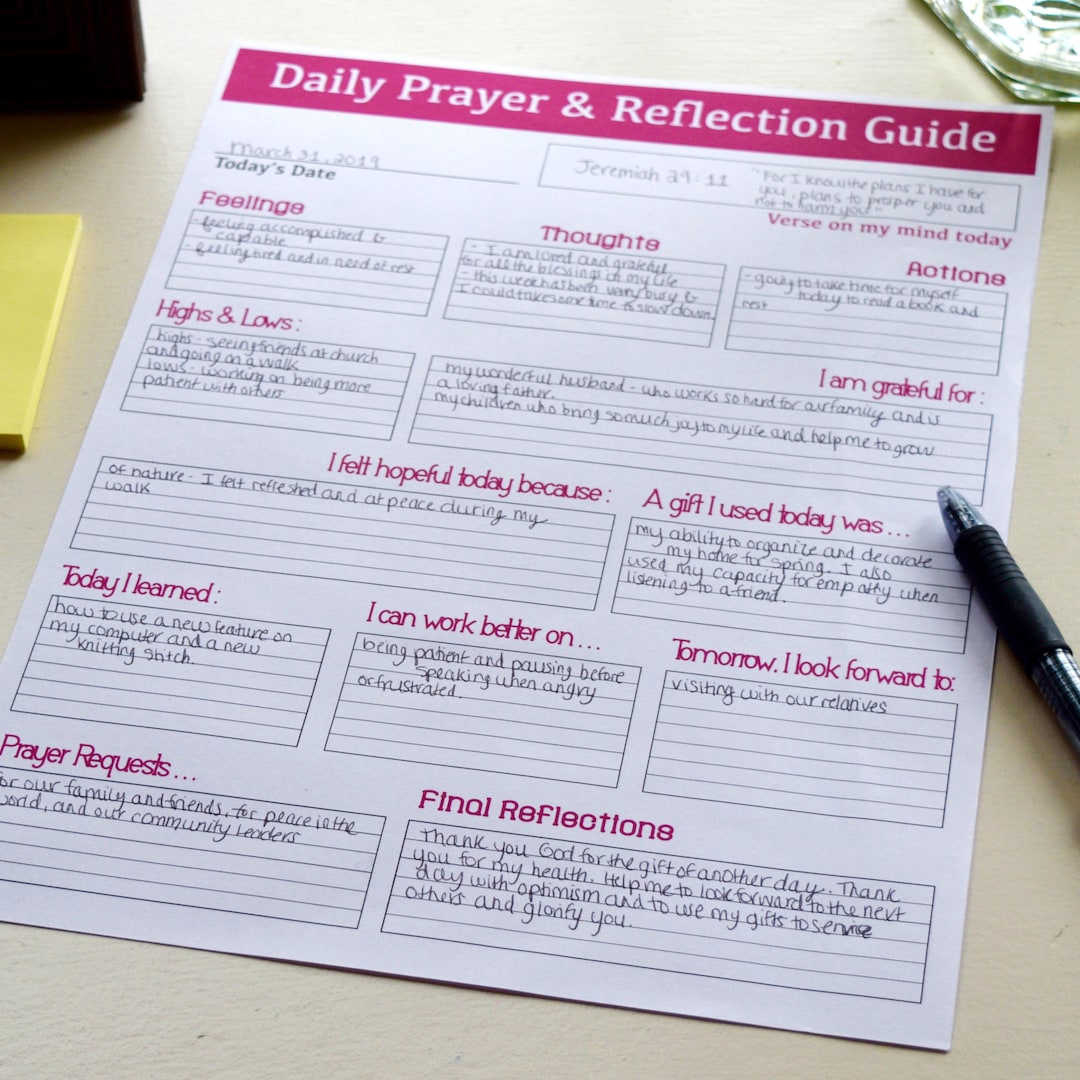 Daily Prayer & Reflection Guide
March 31, 2019
Today's Date
Jeremiah 29:11
"For I know the plans I have for
you, plans to prosper you and
not to harm you"
Verse on my mind today
Feelings
- feeling accomplished &
capable
- feeling tired and in need of rest
Thoughts
- I am loved and grateful
for all the blessings in my life
- this week has been very busy &
I could take some time to slow down.
Actions
- going to take time for myself
today to read a book and
rest
Highs & Lows:
highs - seeing friends at church
and going on a walk
lows - working on being more
patient with others
I am grateful for:
my wonderful husband - who works so hard for our family and is
a loving father.
my children who bring so much joy to my life and help me to grow
I felt hopeful today because:
of nature - I felt refreshed and at peace during my
walk
A gift I used today was...
my ability to organize and decorate
my home for spring. I also
used my capacity for empathy when
listening to a friend.
Today I learned:
how to use a new feature on
my computer and a new
knitting stitch.
I can work better on...
being patient and pausing before
speaking when angry
or frustrated.
Tomorrow, I look forward to:
visiting with our relatives
Prayer Requests...
for our family and friends, for peace in the
world, and our community leaders
Final Reflections
Thank you God for the gift of another day. Thank
you for my health. Help me to look forward to the next
day with optimism and to use my gifts to
others and glorify you.